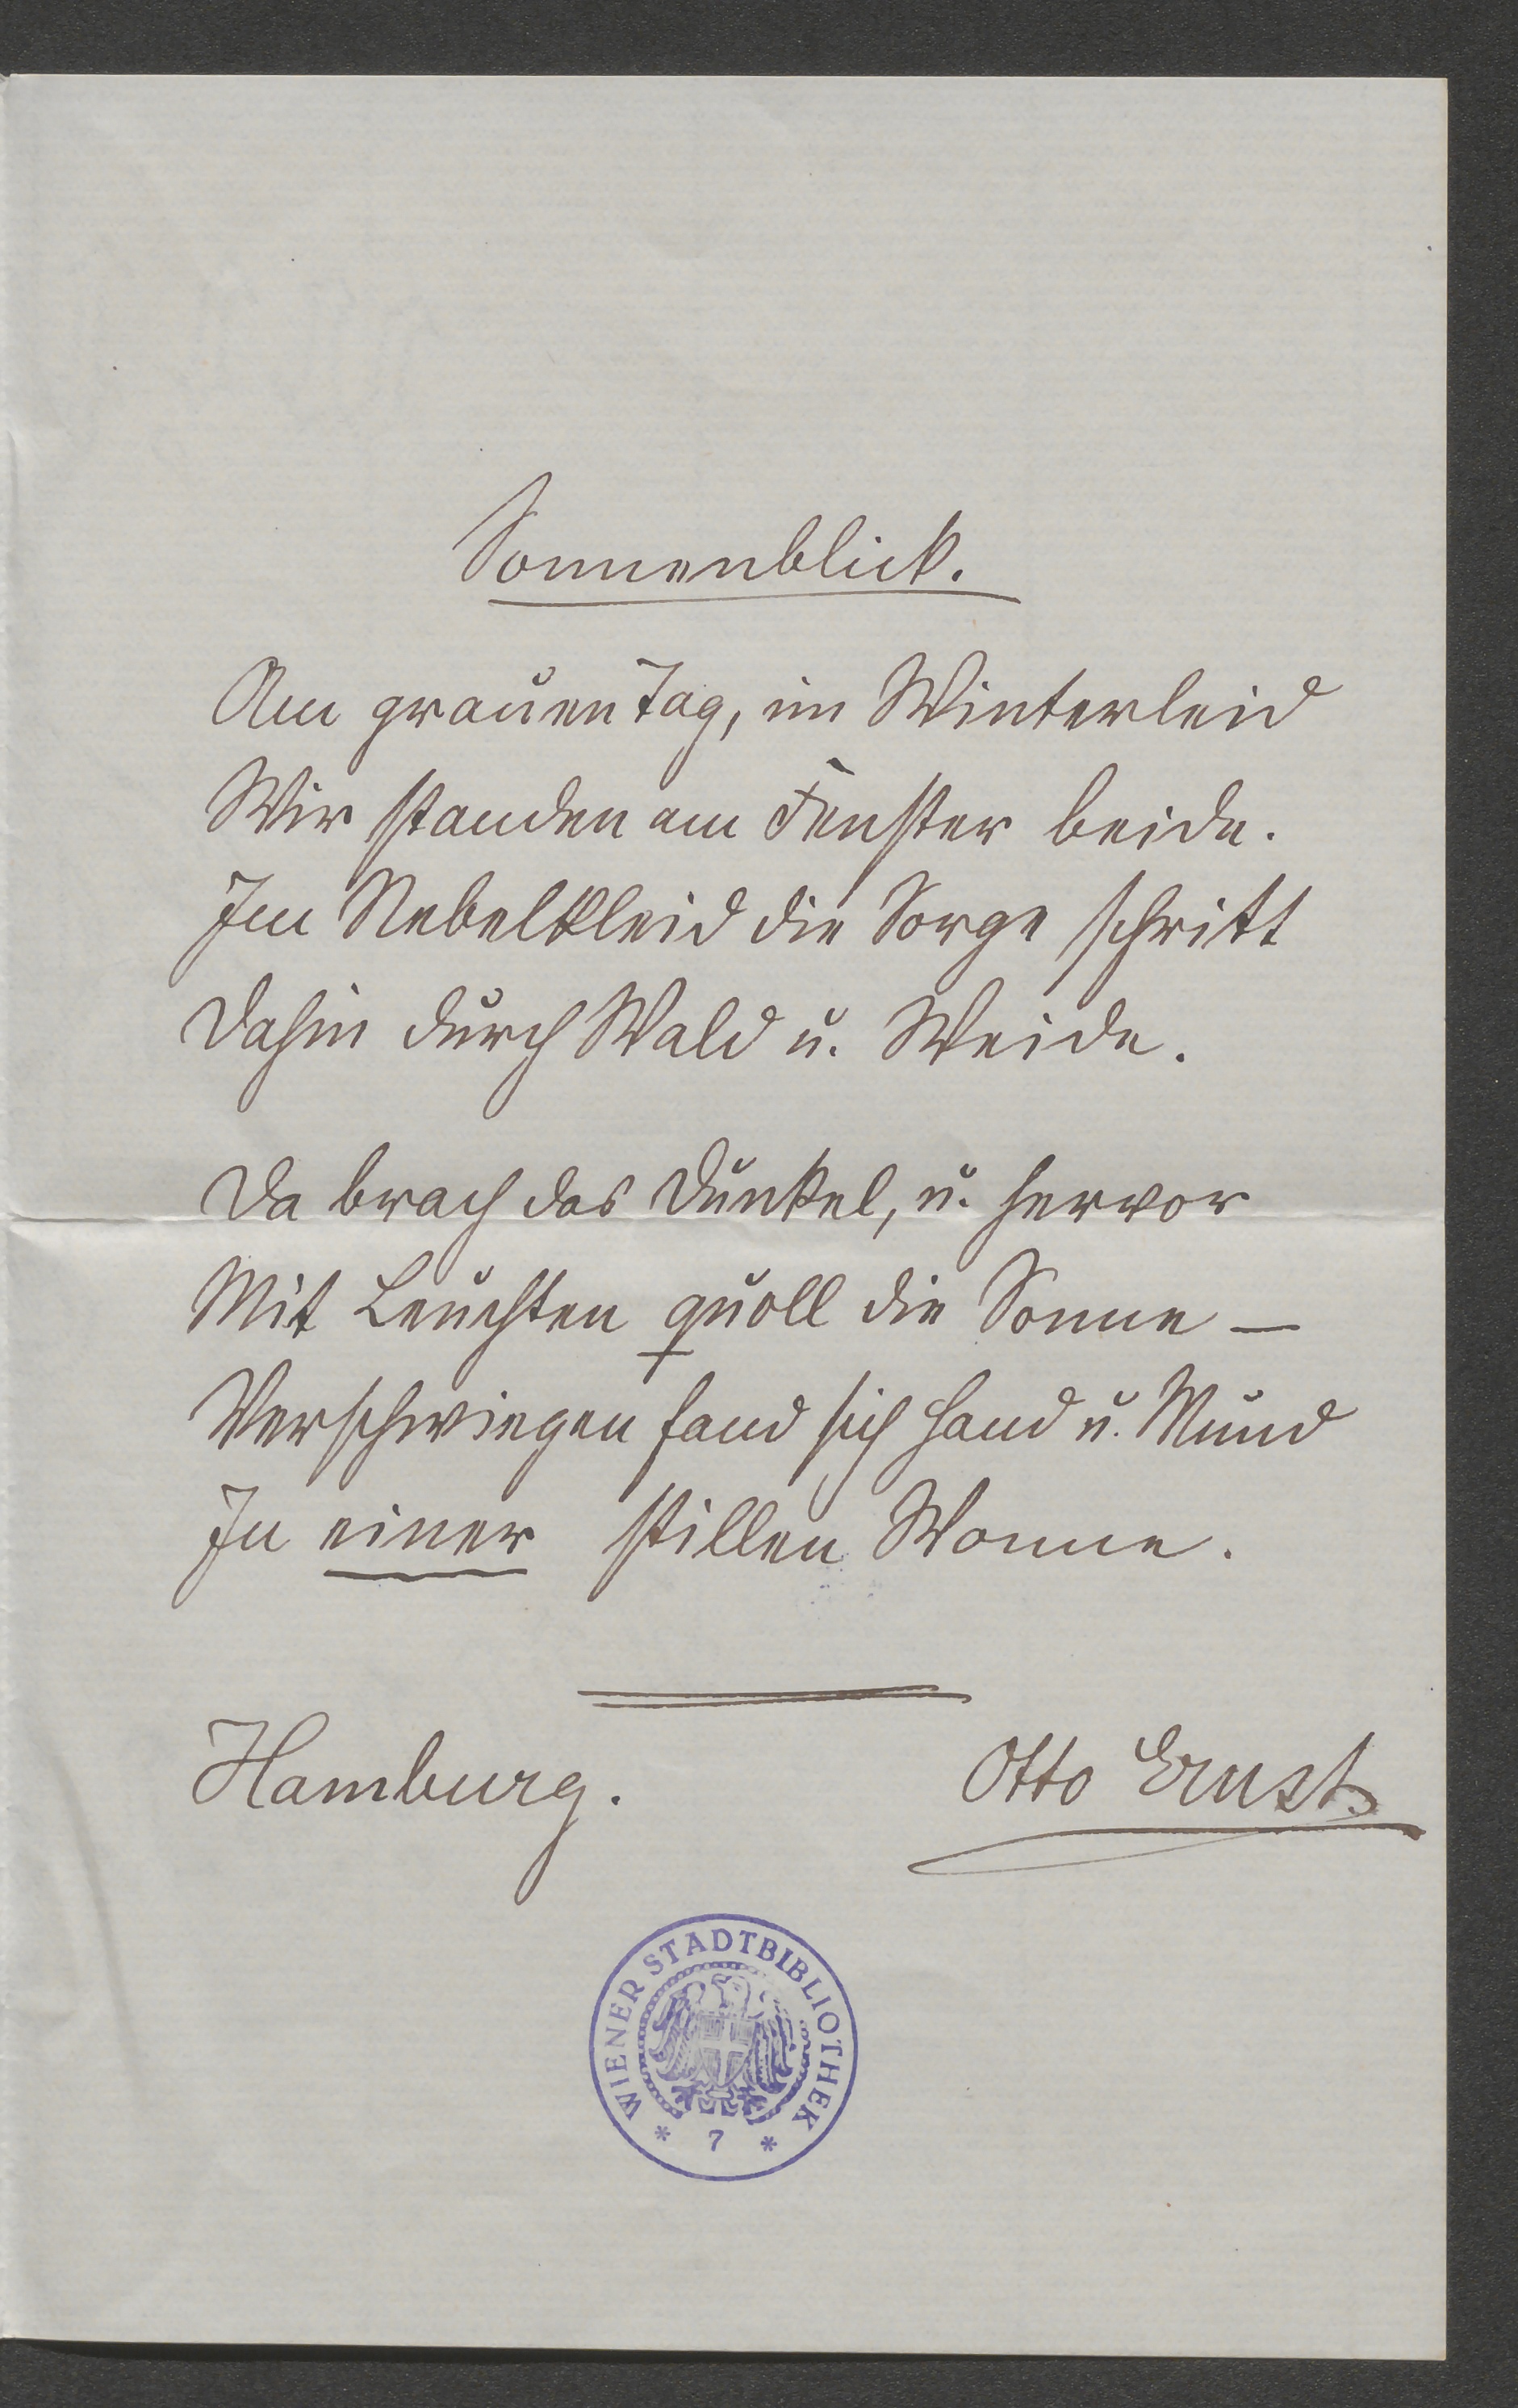 Sonnenblick.
Am grauen Tag, im Winterleid
Wir standen am Fenster beide.
Im Nebelkleid die Sorge schritt
Dahin durch Wald u. Weide.
Da brach das Dunkel, u. hervor
Mit Leuchten quoll die Sonne –
Verschwiegen fand sich Hand u. Mund
In einer stillen Wonne.
Hamburg.
Otto Ernst
WIENER STADTBIBLIOTHEK
* 7 *